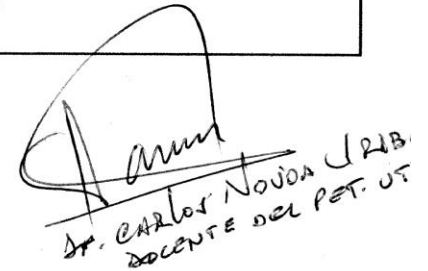 CARLOS NOVOA URIB.
DOCENTE DEL PET. UT